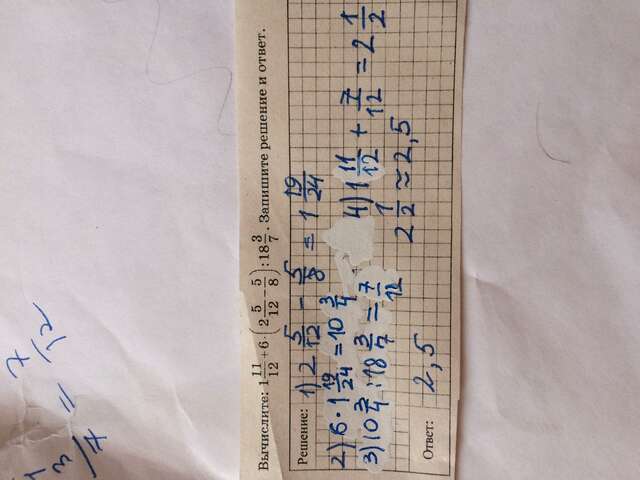 Вычислите: 1 11/12 + 6 · (2 5/12 − 5/8) : 18 3/7. Запишите решение и ответ.
Решение: 1) 2 5/12 − 5/8 = 1 19/24
2) 6 · 1 19/24 = 10 3/4
3) 10 3/4 : 18 3/7 = 7/12
4) 1 11/12 + 7/12 = 2 1/2
2 1/2 ≈ 2,5
Ответ: 2,5